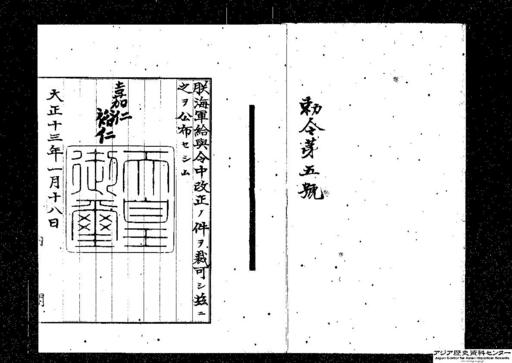 勅令第五號
朕海軍給與令中改正ノ件ヲ裁可シ茲ニ
之ヲ公布セシム
嘉仁
裕仁
天皇
御璽
大正十三年一月十八日
内
閣
アジア歴史資料センター
Japan Center for Asian Historical Records